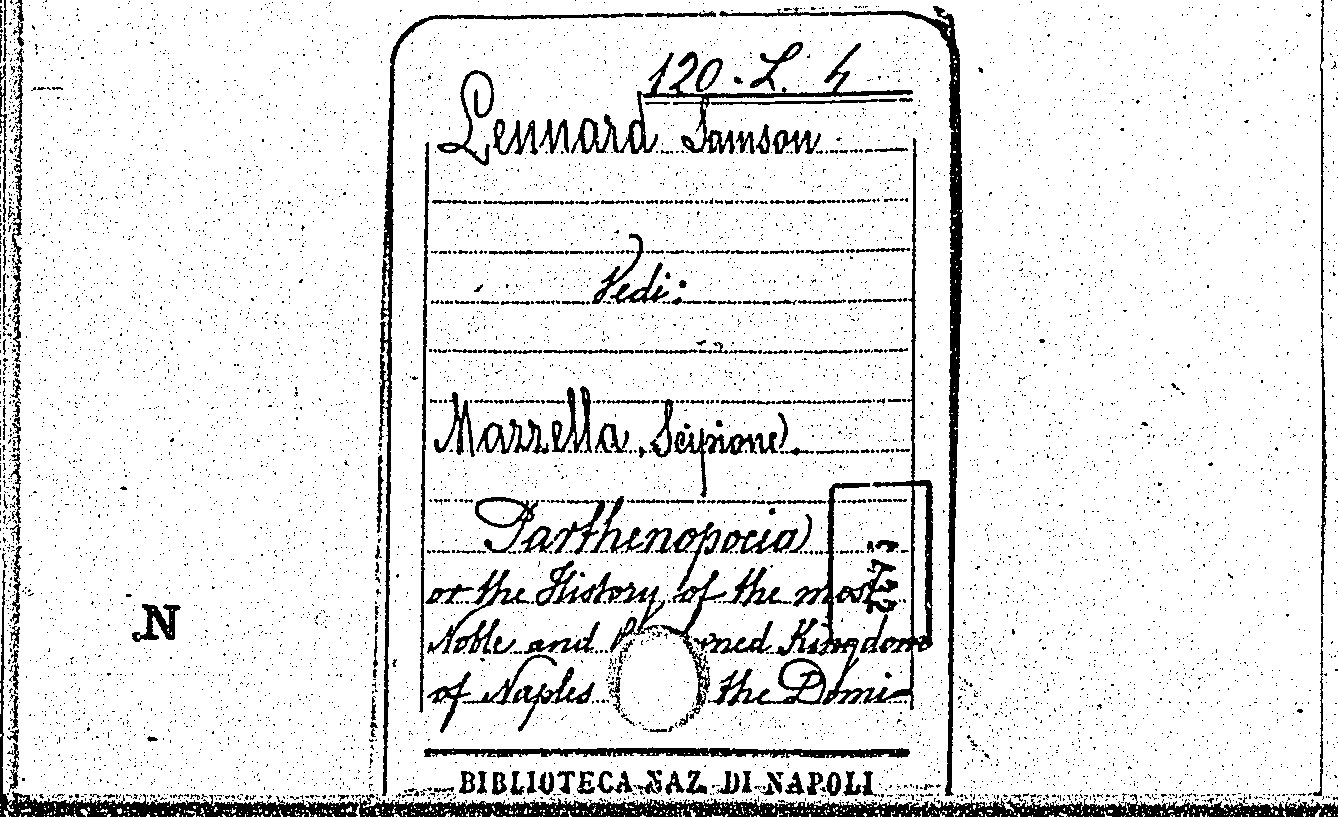 120-L. 4
Lennard Samson
Vedi:
Mazzella, Scipione.
Parthenopoeia
or the History of the most
Noble and ned Kingdom
of Naples the Domi-
N
BIBLIOTECA NAZ. DI NAPOLI